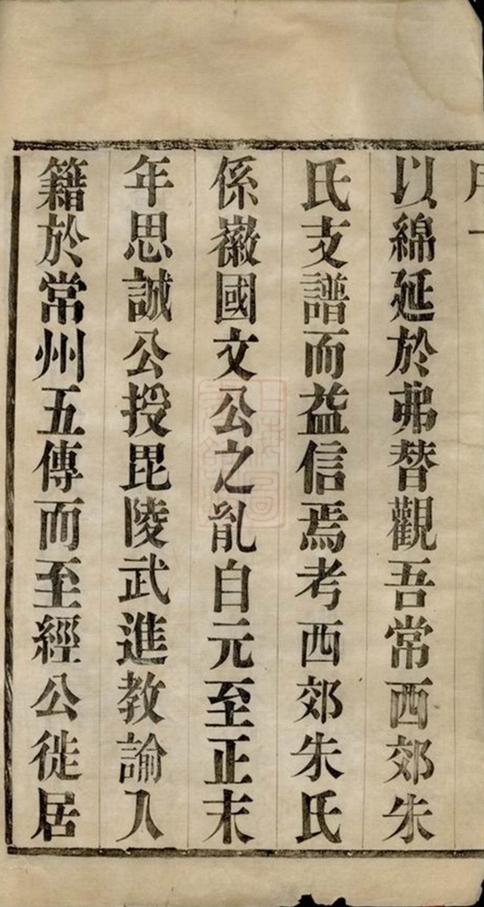 以綿延於弗替觀吾常西郊朱
氏支譜而益信焉考西郊朱氏
係徽國文公之胤自元至正末
年思誠公授毘陵武進教諭入
籍於常州五傳而至經公徙居